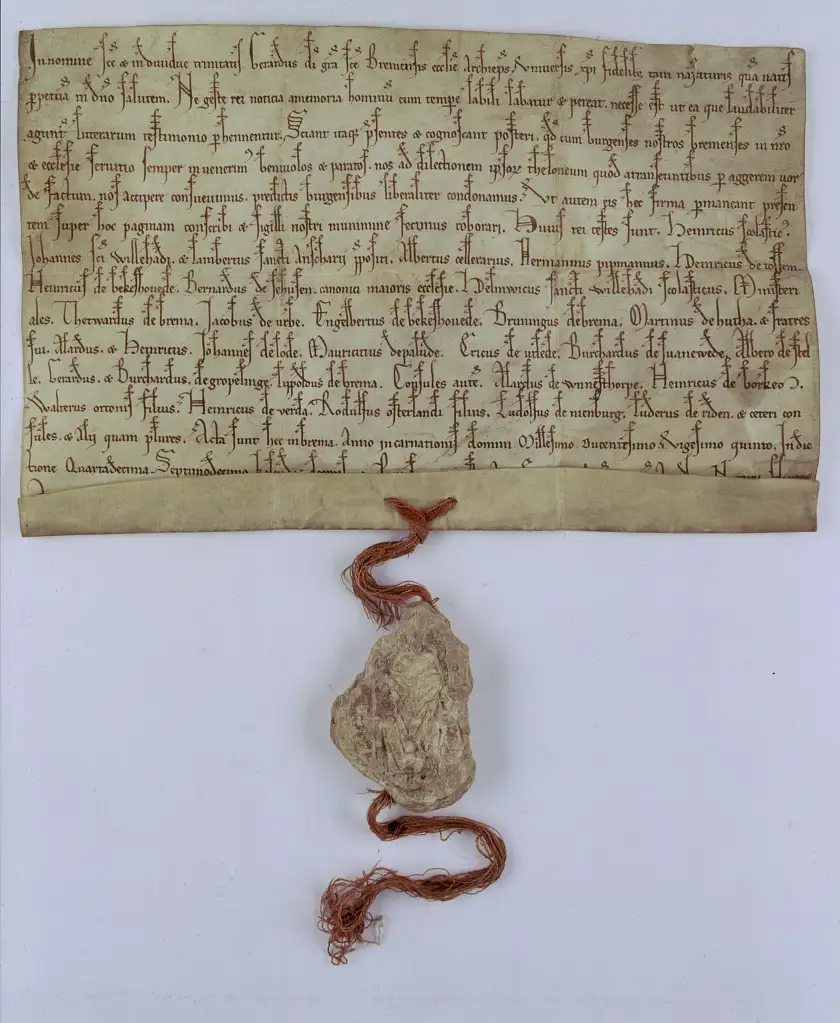 In nomine sce et individue trinitatis. Gerardus di gra sce Bremensis ecclie Archieps. Universis xpi fidelibz tam nascituris qua natis
ppetua in dno salutem. Ne geste rei noticia a memoria hominu cum tempe labili labatur et pereat. necesse est ut ea que laudabiliter
agunt litterarum testimonio phennentur. Sciant itaqz psentes et cognoscant posteri. qd cum burgenses nostros bremenses in nro
et ecclesie servitio semper invenerim benivolos et paratos. nos ad dilectionem ipsorz theloneum quod a transeuntibus p aggerem vor
de factum. nos accipere consuevimus. predictis burgensibus liberaliter condonamus. Ut autem gis hec firma pmaneant presen
tem super hoc paginam conscribi et sigilli nostri munimine fecimus roborari. Huius rei testes sunt. Heinricus scolastic.
Johannes sci willehadi. et lambertus sancti Anscharii ppositi. Albertus cellerarius. Hermannus pipmannus. Heinricus de tossem.
Heinricus de bekeshovede. Bernardus de sehusen. canonici maioris ecclesie. Helmwicus sancti willehadi scolasticus. Ministeri
ales. Therwardus de brema. Jacobus de urbe. Engelbertus de bekeshovede. Bruningus de brema. Martinus de hutha. et fratres
sui. Alardus. et Heinricus. Johannes de lode. Mauricius de palude. Ericus de urlede. Burchardus de juanewede. Albero de stel
le. Gerardus. et Burchardus. de gropelinge. lippoldus de brema. Consules aute. Alardus de winnesthorpe. Heinricus de borken.
Walterus ottonis filius. Heinricus de verda. Rodulfus osterlandi filius. Ludolfus de nienburg. luderus de riden. et ceteri con
sules. et alij quam plures. Acta sunt hec in brema. Anno incarnationis domini Millesimo Ducentesimo Vigesimo quinto. Indic
tione Quartadecima. Septimodecimo